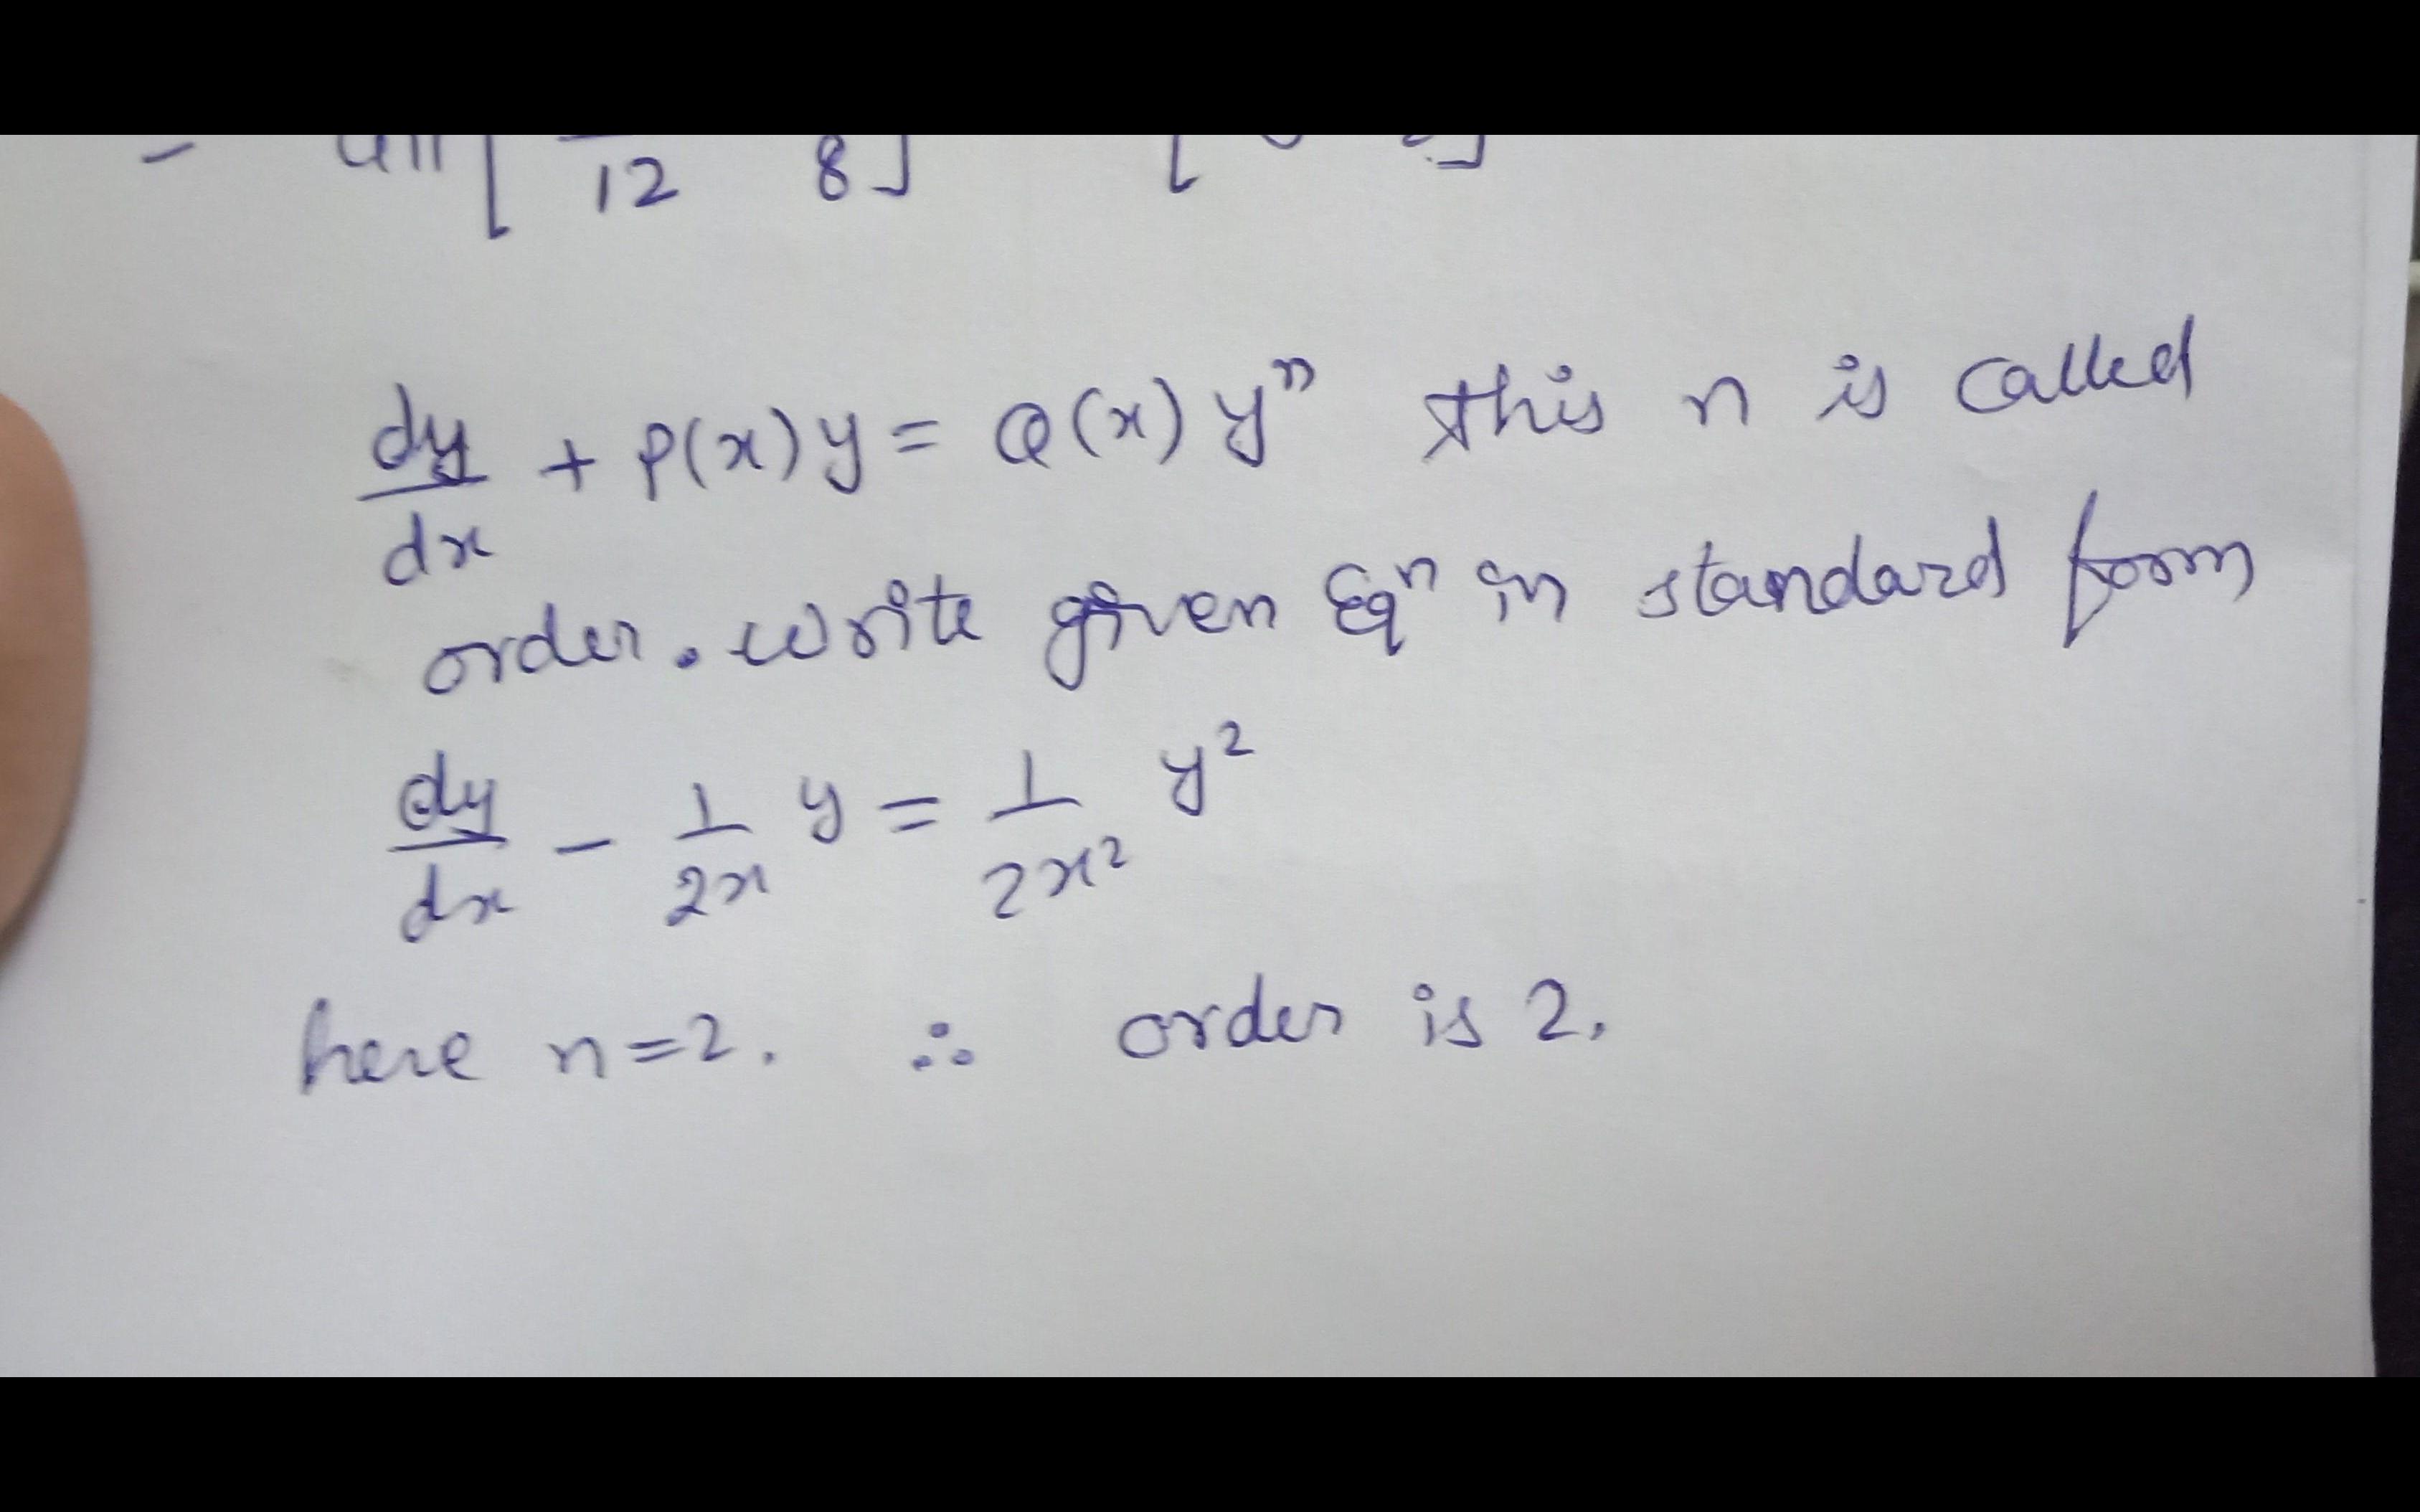 12 8]
dy/dx + P(x)y = Q(x) yⁿ this n is called
order. write given Eqⁿ in standard form
dy/dx - 1/2x y = 1/2x² y²
here n=2. ∴ order is 2.